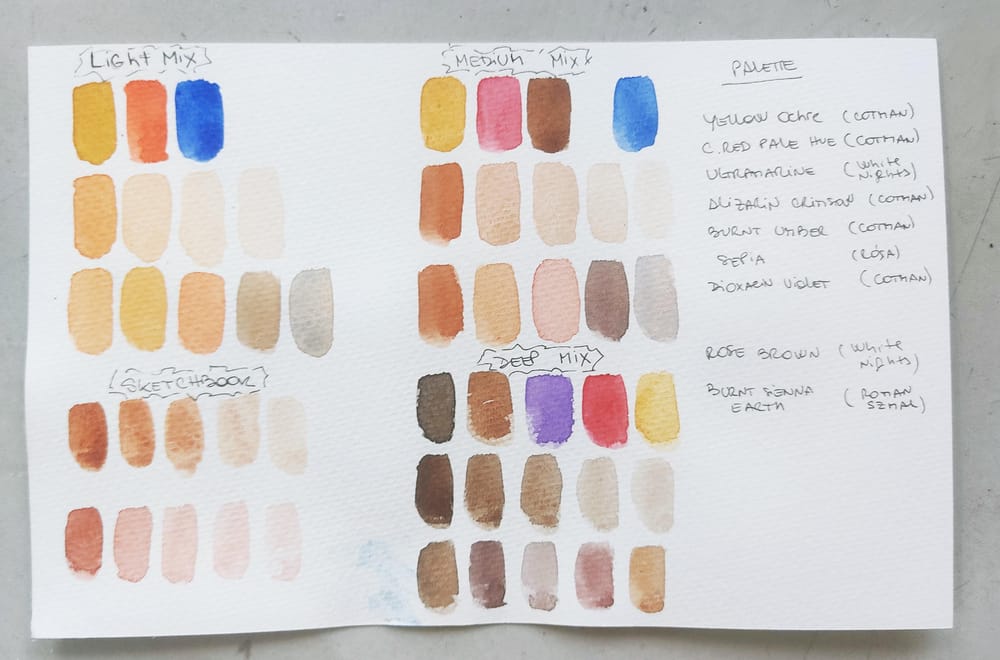 Light Mix
MEDIUM MIX
SKETCHBOOK
DEEP MIX
PALETTE
YELLOW OCHRE (COTMAN)
C.RED PALE HUE (COTMAN)
ULTRAMARINE (White
Nights)
ALIZARIN CRIMSON (COTMAN)
BURNT UMBER (COTMAN)
SEPIA (RÓSA)
DIOXAZIN VIOLET (COTMAN)
ROSE BROWN (White
Nights)
BURNT SIENNA (ROMAN
EARTH SZMAL)